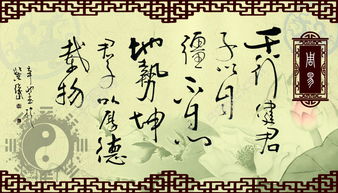 周易
天行健君
子以自
彊不息
地勢坤
君子以厚德
載物